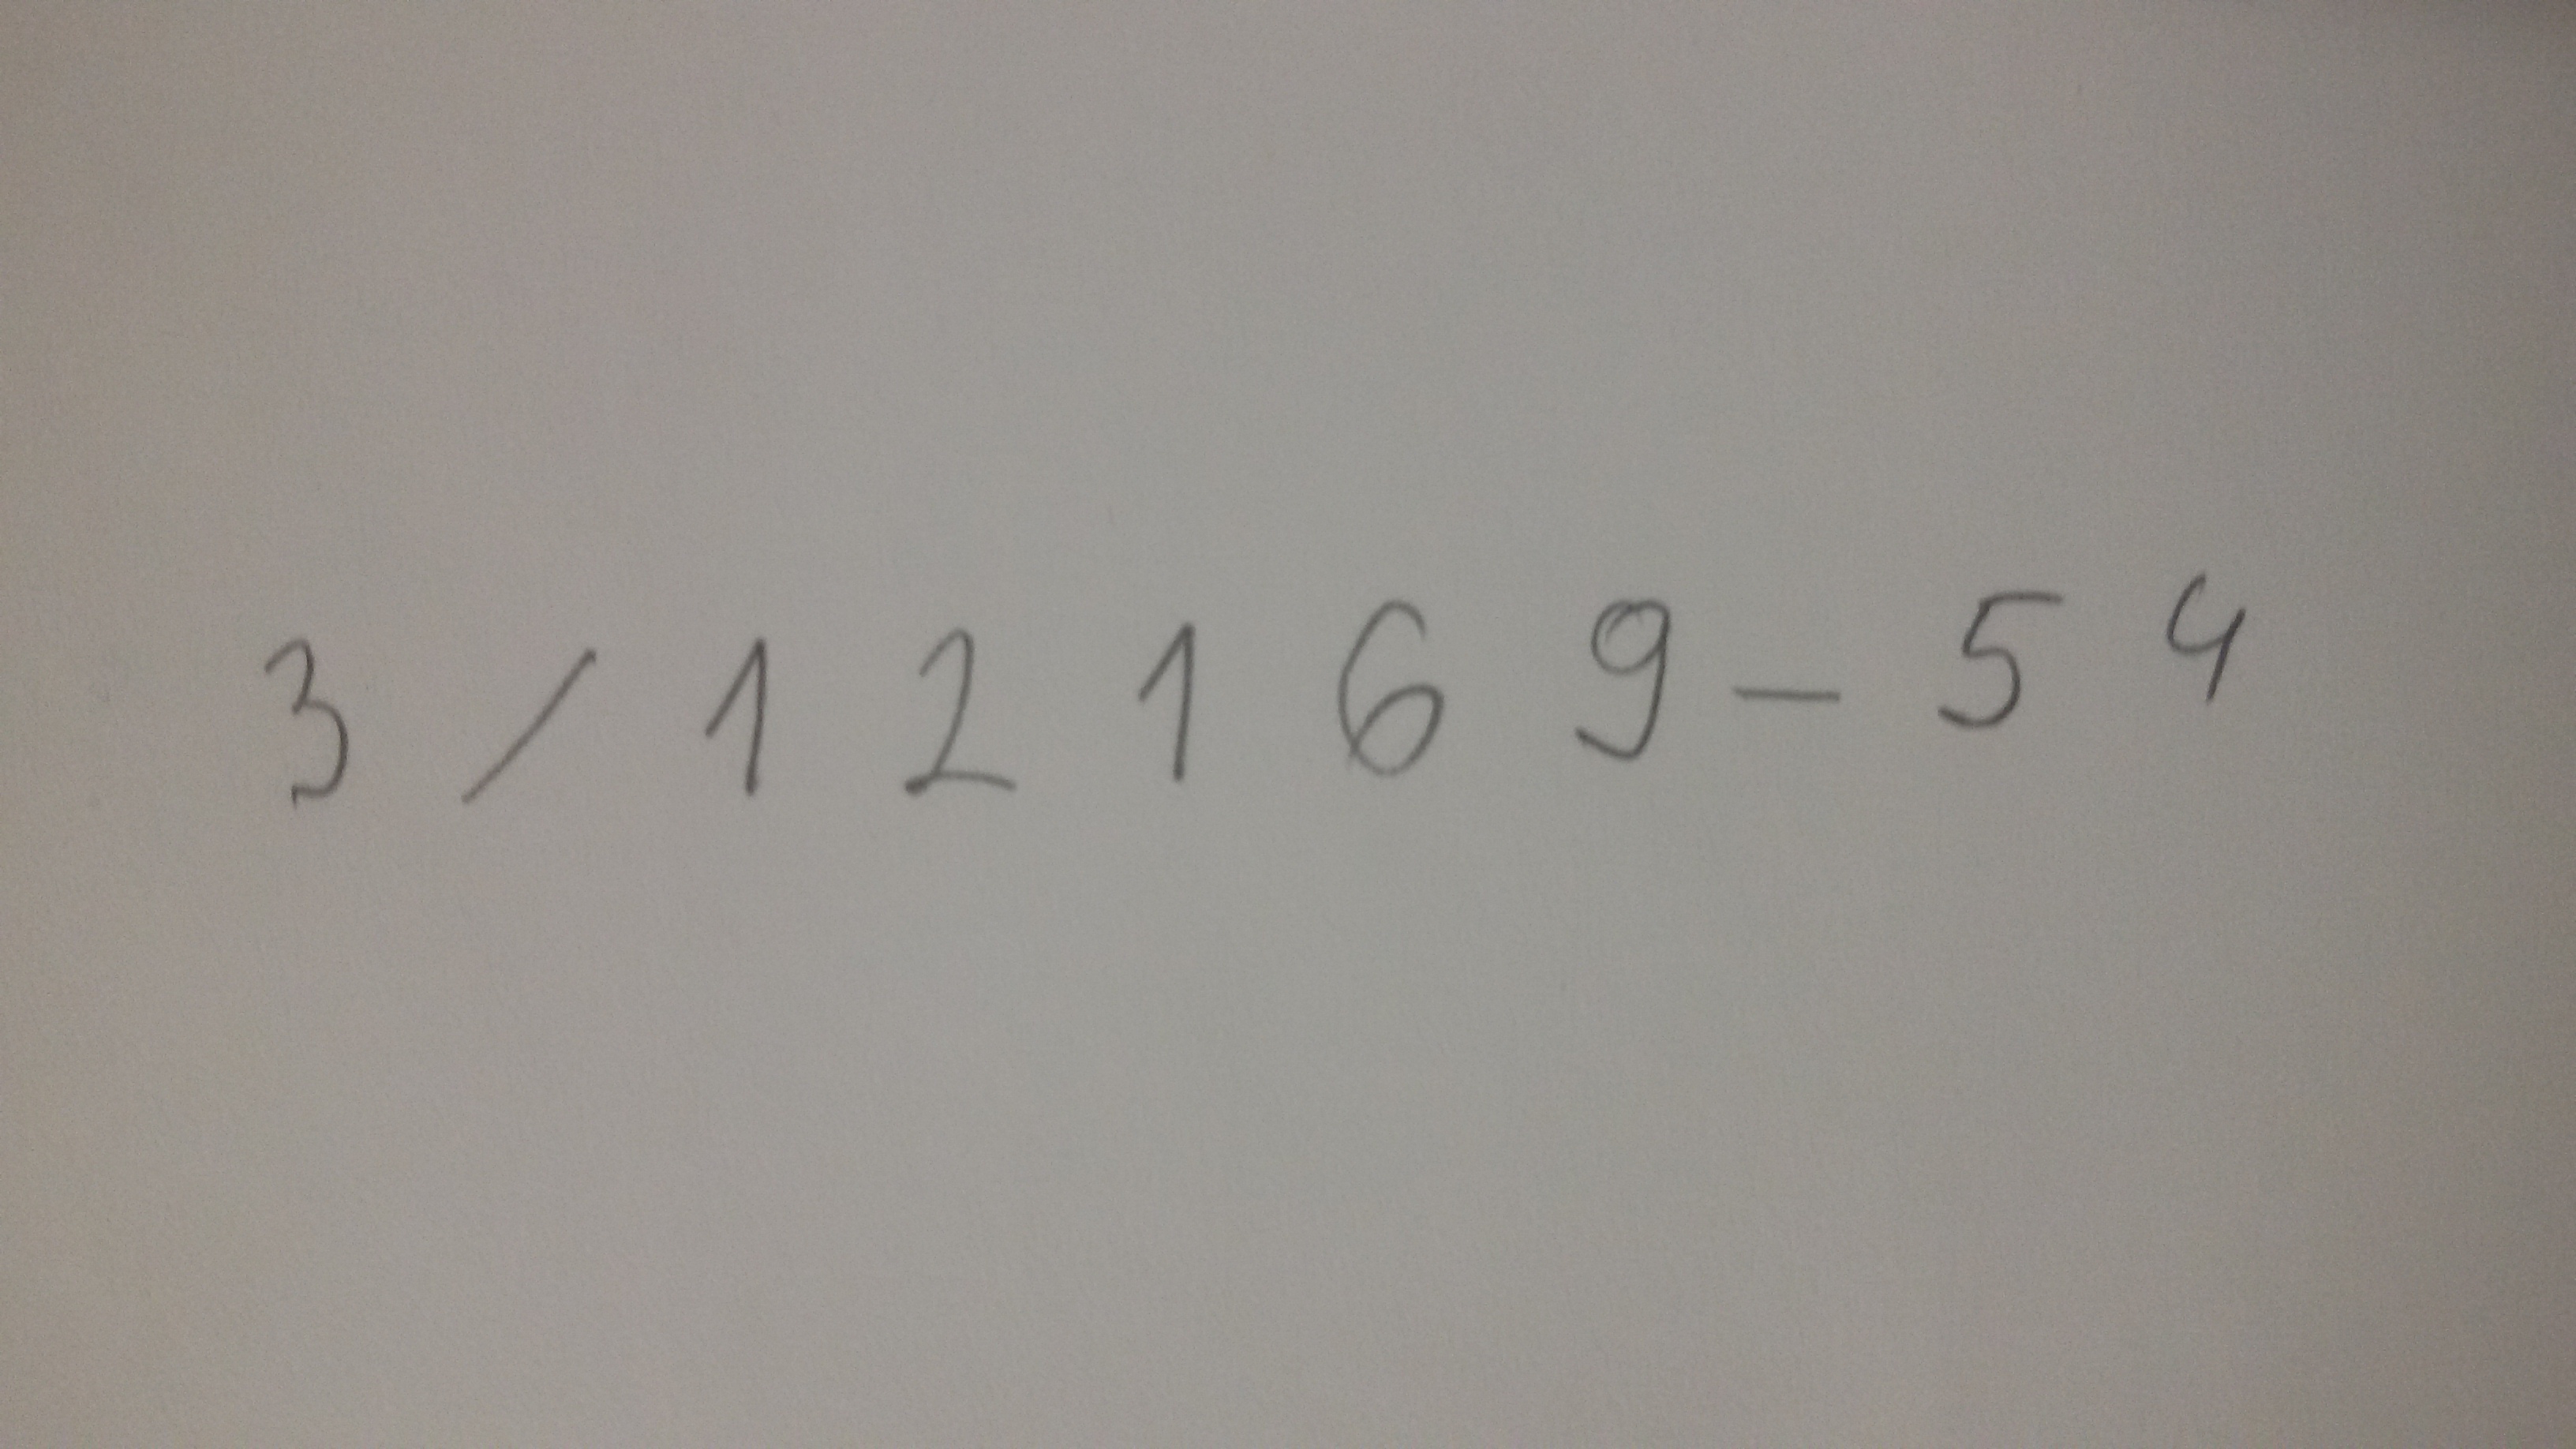 3 / 1 2 1 6 9 - 5 4